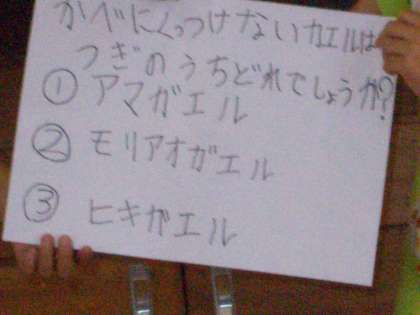 かべにくっつけないカエルは
つぎのうちどれでしょうか?
① アマガエル
② モリアオガエル
③ ヒキガエル